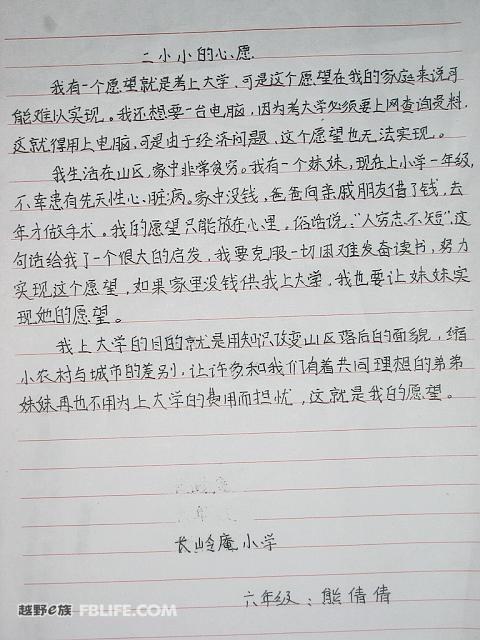 二小小的心愿
我有一个愿望就是考上大学，可是这个愿望在我的家庭来说可
能难以实现。我还想要一台电脑，因为考大学必须要上网查询资料，
这就得用上电脑，可是由于经济问题，这个愿望也无法实现。
我生活在山区，家中非常贫穷。我有一个妹妹，现在上小学一年级，
不幸患有先天性心脏病。家中没钱，爸爸向亲戚朋友借了钱，去
年才做手术。我的愿望只能放在心里。俗话说："人穷志不短"，这
句话给我了一个很大的启发，我要克服一切困难发奋读书，努力
实现这个愿望，如果家里没钱供我上大学，我也要让妹妹实
现她的愿望。
我上大学的目的就是用知识改变山区落后的面貌，缩
小农村与城市的差别，让许多和我们有着共同理想的弟弟
妹妹再也不用为上大学的费用而担忧，这就是我的愿望。
长岭庵小学
六年级：熊倩倩
越野e族 FBLIFE.COM